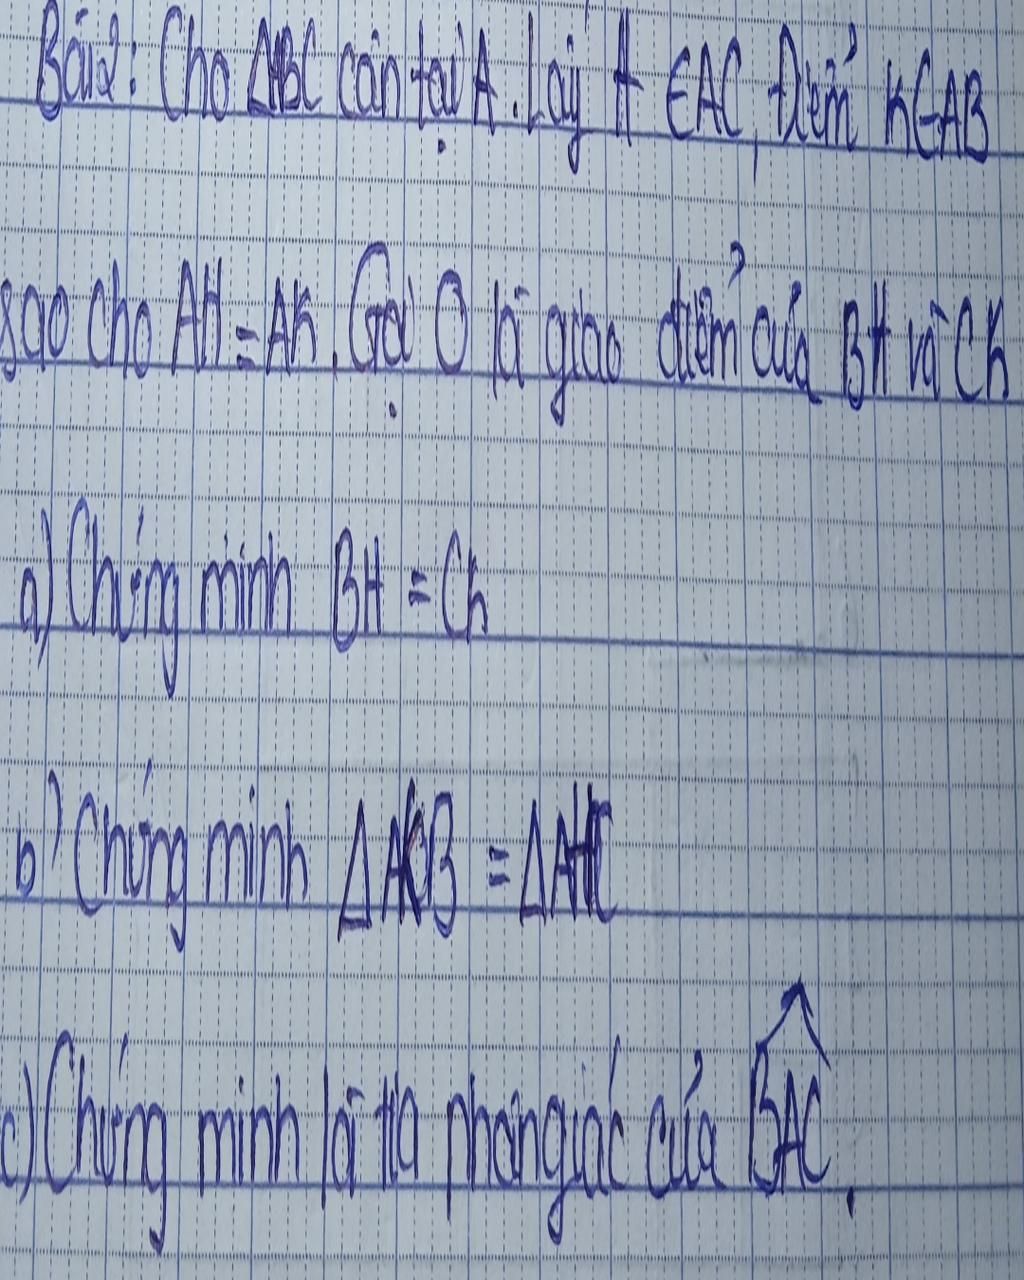 Bài 2: Cho ΔABC cân tại A. Lấy H ∈ AC, Điểm K ∈ AB
sao cho AH = AK. Gọi O là giao điểm của BH và CK
a) Chứng minh BH = CK
b) Chứng minh ΔAKB = ΔAHC
c) Chứng minh là tia phân giác của \widehat{BAC}.